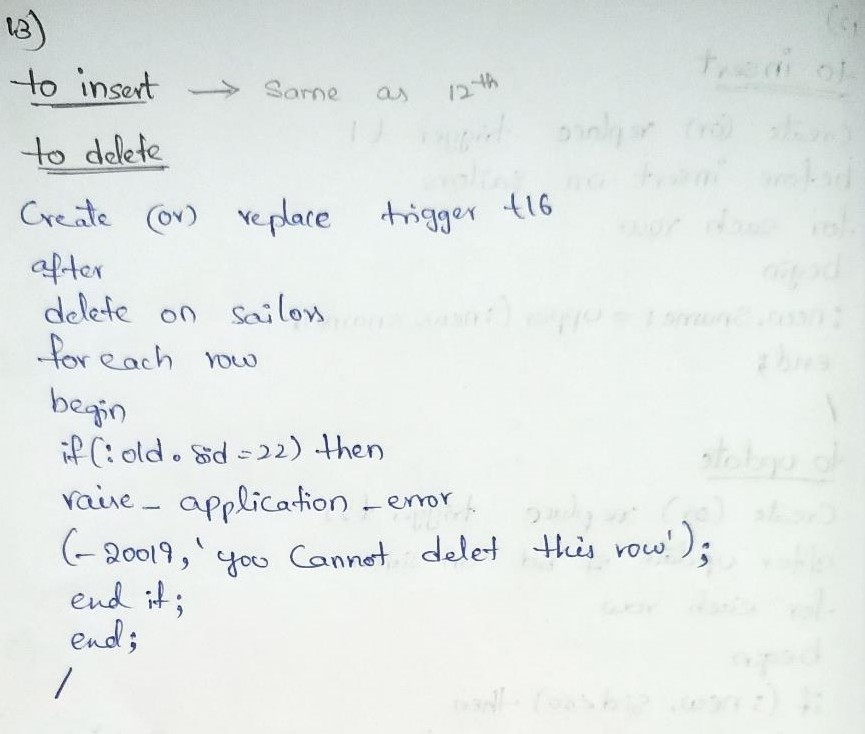 13)
to insert → Same as 12th
to delete
Create (or) replace trigger t16
after
delete on sailors
for each row
begin
if(:old.sid=22) then
raise_application_error
(-20019,'you Cannot delet this row');
end if;
end;
/